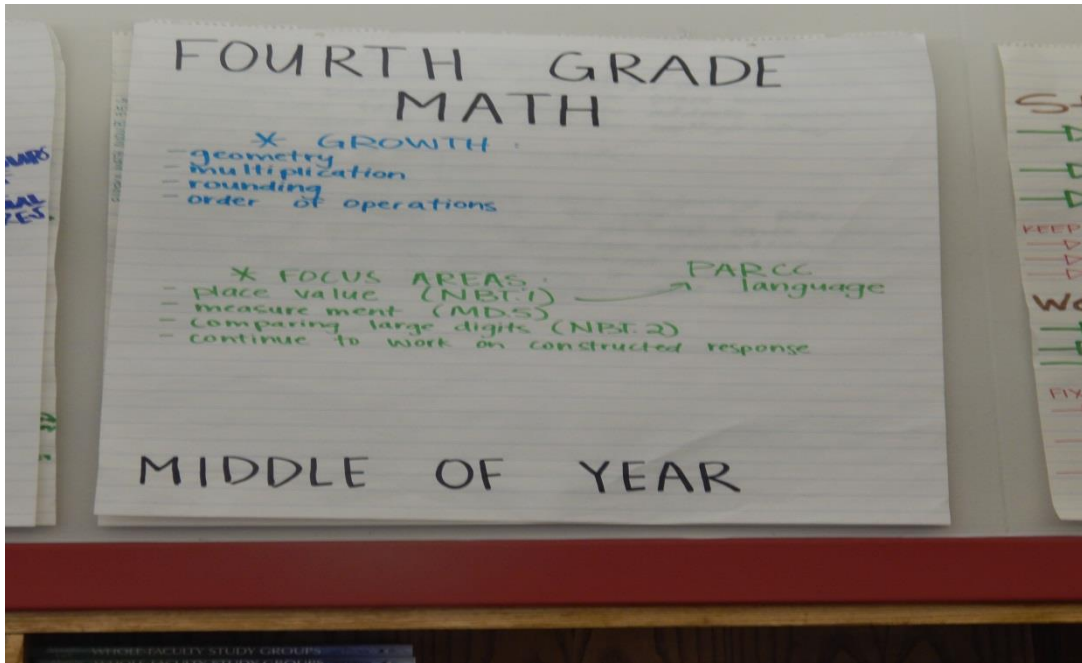 FOURTH GRADE
MATH
* GROWTH
- geometry
- multiplication
- rounding
- order of operations
* FOCUS AREAS: PARCC
- place value (NBT.1) → language
- measure ment (MD.5)
- comparing large digits (NBT.2)
- continue to work on constructed response
MIDDLE OF YEAR
KEEP
FIX
WHOLE-FACULTY STUDY GROUPS
WHOLE-FACULTY STUDY GROUPS